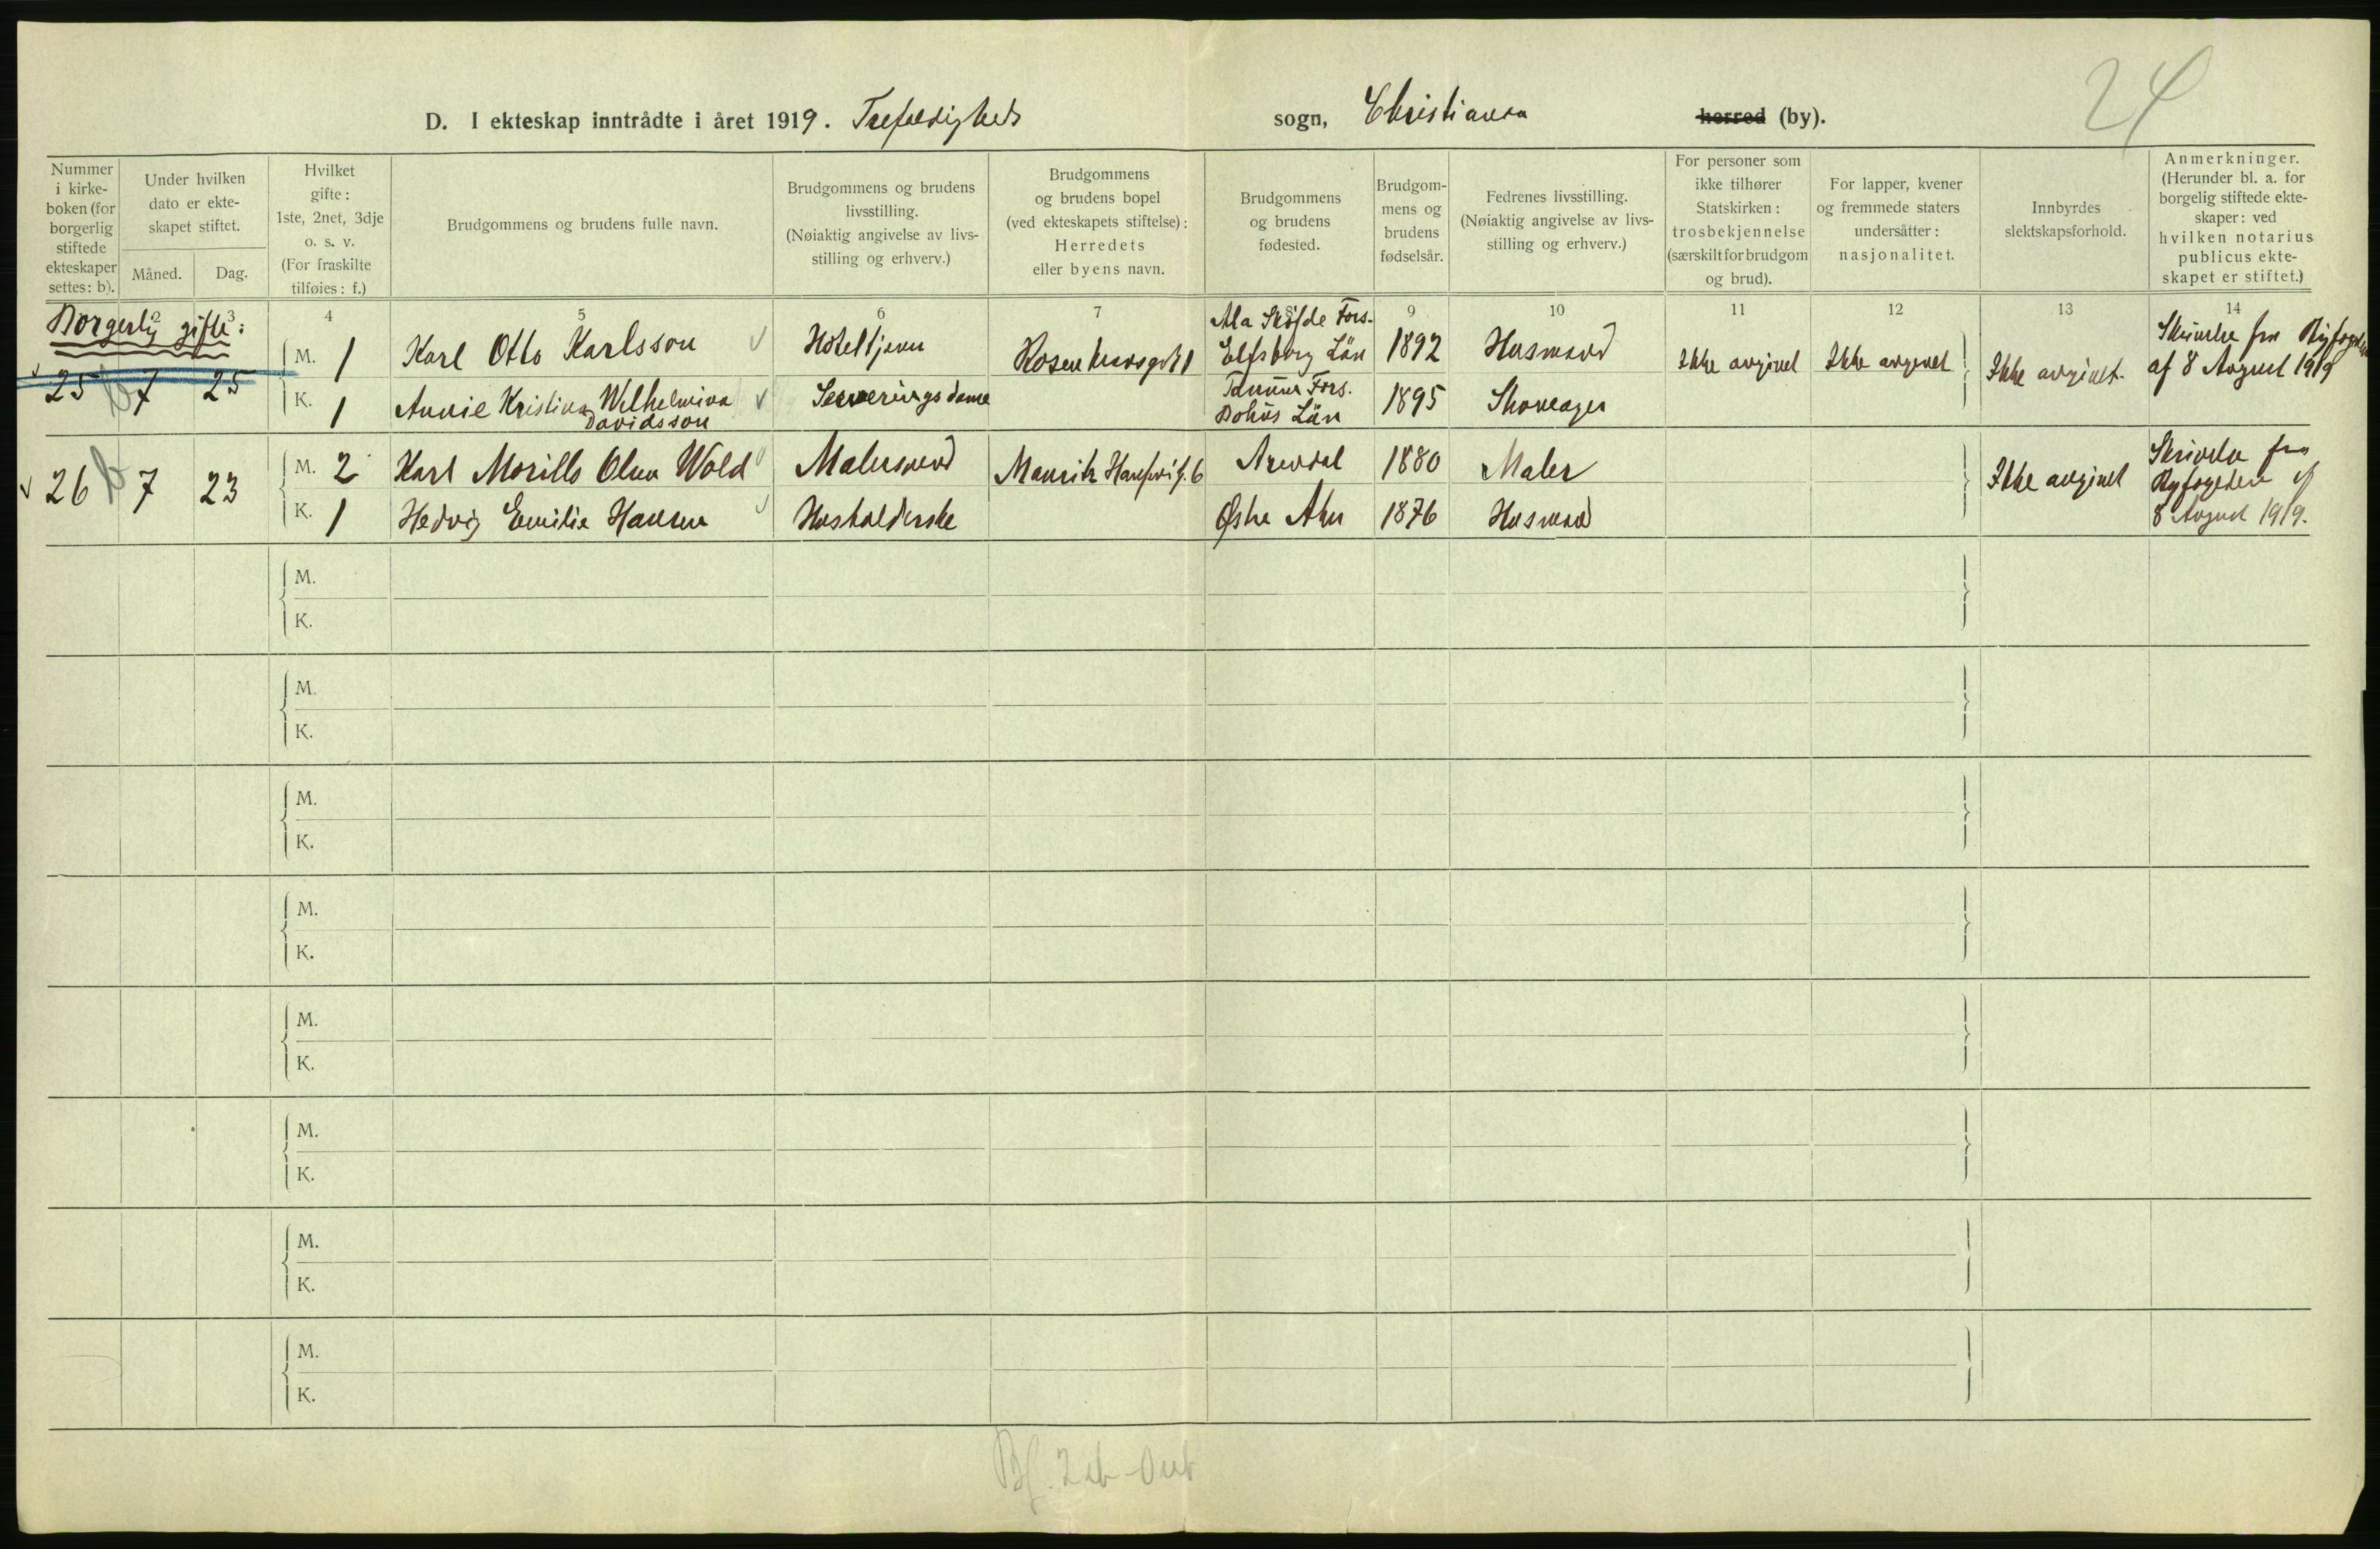 24
D. I ekteskap inntrådte i året 1919. Trefoldigheds sogn, Christiania herred (by).
Nummer i kirkeboken (for borgerlig stiftede ekteskaper settes: b).
Under hvilken dato er ekteskapet stiftet.
Måned.
Dag.
Hvilket gifte: 1ste, 2net, 3dje o. s. v. (For fraskilte tilføies: f.)
Brudgommens og brudens fulle navn.
Brudgommens og brudens livsstilling. (Nøiaktig angivelse av livsstilling og erhverv.)
Brudgommens og brudens bopel (ved ekteskapets stiftelse): Herredets eller byens navn.
Brudgommens og brudens fødested.
Brudgommens og brudens fødselsår.
Fedrenes livsstilling. (Nøiaktig angivelse av livsstilling og erhverv.)
For personer som ikke tilhører Statskirken: trosbekjennelse (særskilt for brudgom og brud).
For lapper, kvener og fremmede staters undersåtter: nasjonalitet.
Innbyrdes slektskapsforhold.
Anmerkninger. (Herunder bl. a. for borgelig stiftede ekteskaper: ved hvilken notarius publicus ekteskapet er stiftet.)
2 3 4 5 6 7 8 9 10 11 12 13 14
Borgerlig gifte:
25 b 7 25
M. 1 Karl Otto Karlsson Hoteltjener Rosenkransgd 1 Ala Sköfde Fors. Elfsborg Län 1892 Husmand Ikke avgivet Ikke avgivet Ikke avgivet. Skrivelse fra Byfogden af 8 August 1919
K. 1 Annie Kristina Wilhelmina Davidsson Serveringsdame Tanum Fors. Bohus Län 1895 Skoveager
26 b 7 23
M. 2 Karl Morills Olsen Wold Malersvend Mauritz Hansensg. 6 Arendal 1880 Maler Ikke avgivet Skrivelse fra Byfogden af 8 August 1919.
K. 1 Hedvig Emilie Hansen Husholderske Østre Aker 1876 Husmand
M.
K.
M.
K.
M.
K.
M.
K.
M.
K.
M.
K.
M.
K.
M.
K.